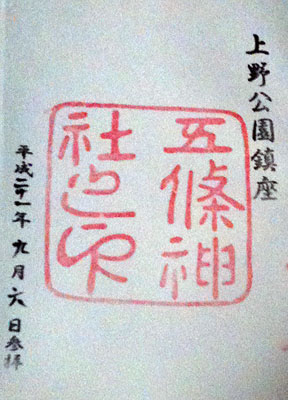 上野公園鎮座
五條神
社之印
平成二十一年九月六日参拝